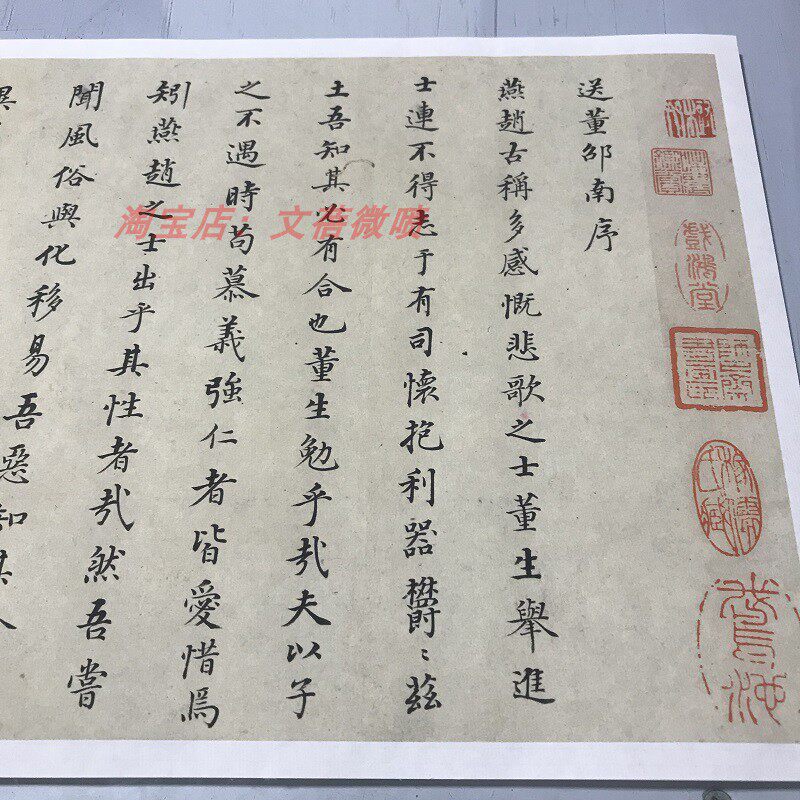 送董邵南序
燕趙古稱多感慨悲歌之士董生舉進
士連不得志于有司懷抱利器欝〻茲
土吾知其必有合也董生勉乎哉夫以子
之不遇時苟慕義強仁者皆愛惜焉
矧燕趙之士出乎其性者哉然吾嘗
聞風俗與化移易吾惡知其
異
戲鴻堂
淘宝店：文蓓微喷